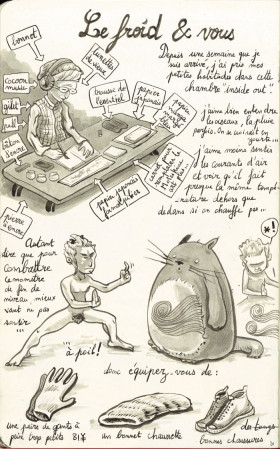 Le froid & vous
bonnet
lunettes de vue
Depuis une semaine que je
suis arrivé, j'ai pris mes
petites habitudes dans cette
chambre "inside out"
cocoon
gilet
pull
trousse de
l'essentiel
papier
japonais
j'aime bien entendre
les oiseaux, la pluie
parfois. On se croirait en
yourte...
j'aime moins sentir
les courants d'air
et voir qu'il fait
presque la même tempé-
rature dehors que
dedans si on chauffe pas...
papier japonais
pierre à
encre
Autant
dire que pour
combattre
le monstre
de fin de
niveau, mieux
vaut ne pas
sortir
...
*!
... à poil!
donc équipez-vous de:
une paire de gants à
peine trop petits
un bonnet chaussette
des
bonnes chaussures